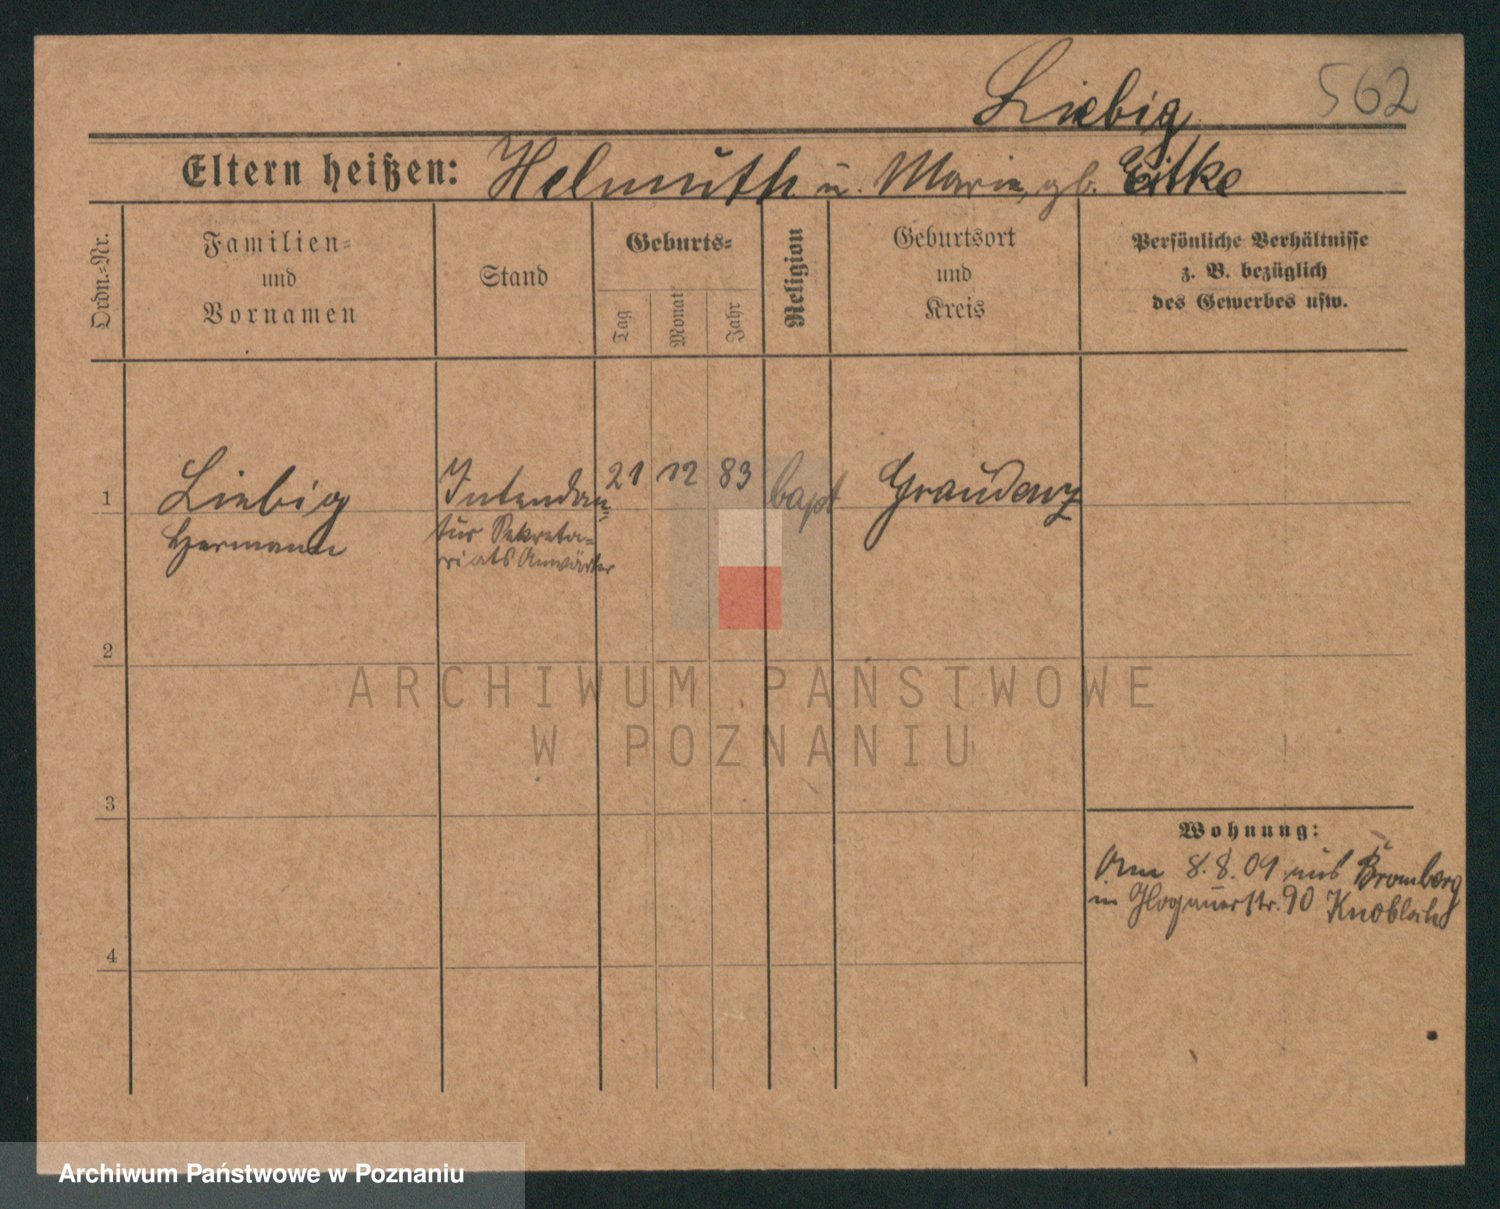 Liebig
562
Eltern heißen: Helmuth u. Marie, gb. Eitke
Ordn.-Nr.
Familien-
und
Vornamen
Stand
Geburts-
Tag
Monat
Jahr
Religion
Geburtsort
und
Kreis
Persönliche Verhältnisse
z. B. bezüglich
des Gewerbes usw.
1
Liebig
Hermann
Intendan-
tur Sekreta-
riats Anwärter
21 12 83
bapt
Graudenz
2
3
4
Wohnung:
Am 8.8.09 aus Bromberg
in Glogauerstr. 90
ARCHIWUM PAŃSTWOWE
W POZNANIU
Archiwum Państwowe w Poznaniu